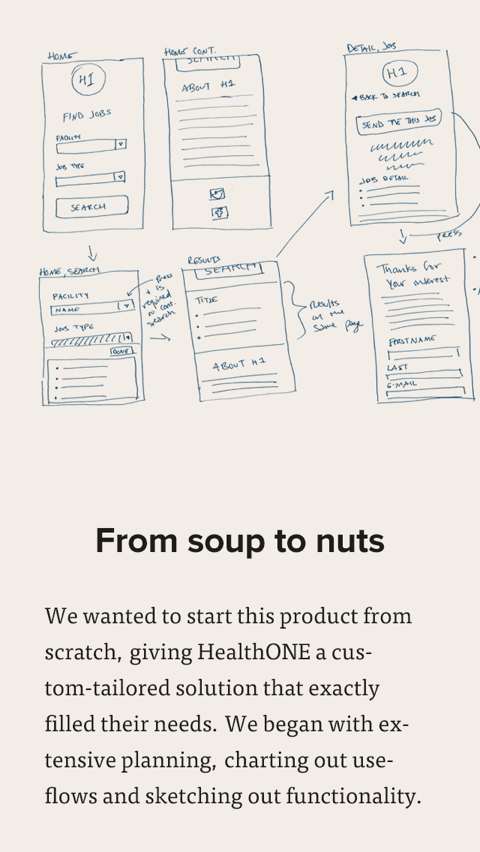 HOME
H1
FIND JOBS
FACILITY
JOB TYPE
SEARCH
HOME CONT.
SEARCH
ABOUT H1
DETAIL, JOB
H1
BACK TO SEARCH
SEND ME THIS JOB
JOB DETAIL
PRESS
HOME, SEARCH
FACILITY
NAME
JOB TYPE
DONE
is
required
search
RESULTS
SEARCH
TITLE
ABOUT H1
Results
on the
same page
Thanks for
your interest
FIRST NAME
LAST
E-MAIL
From soup to nuts
We wanted to start this product from
scratch, giving HealthONE a cus-
tom-tailored solution that exactly
filled their needs. We began with ex-
tensive planning, charting out use-
flows and sketching out functionality.